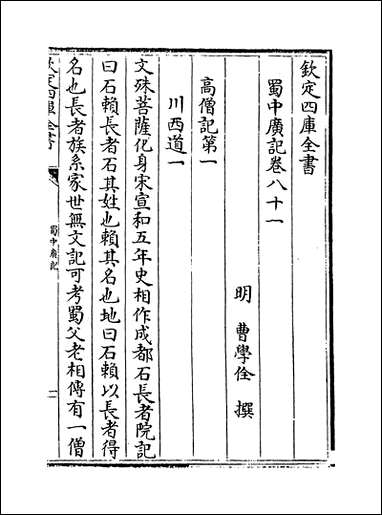 欽定四庫全書
蜀中廣記卷八十一
明 曹學佺 撰
高僧記第一
川西道一
文殊菩薩化身宋宣和五年史相作成都石長者院記
曰石賴長者石其姓也賴其名也地曰石賴以長者得
名也長者族系家世無文記可考蜀父老相傳有一僧
欽定四庫全書
蜀中廣記